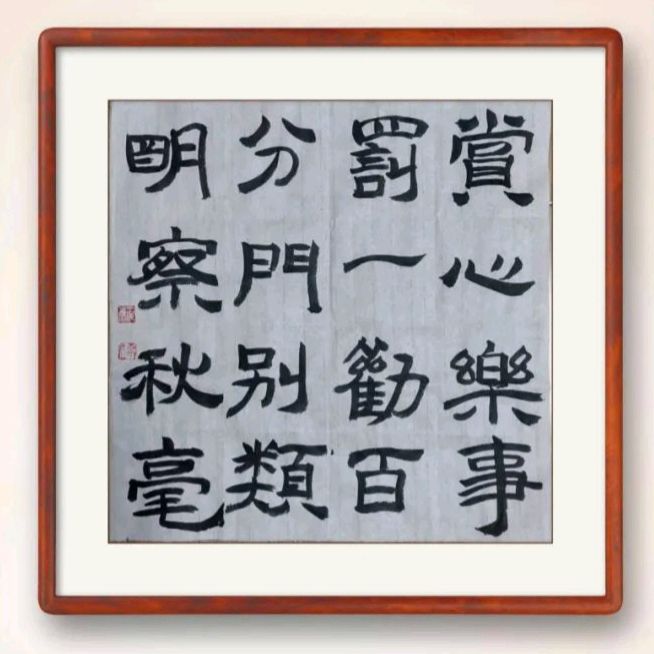 賞心樂事
罰一勸百
分門別類
明察秋毫